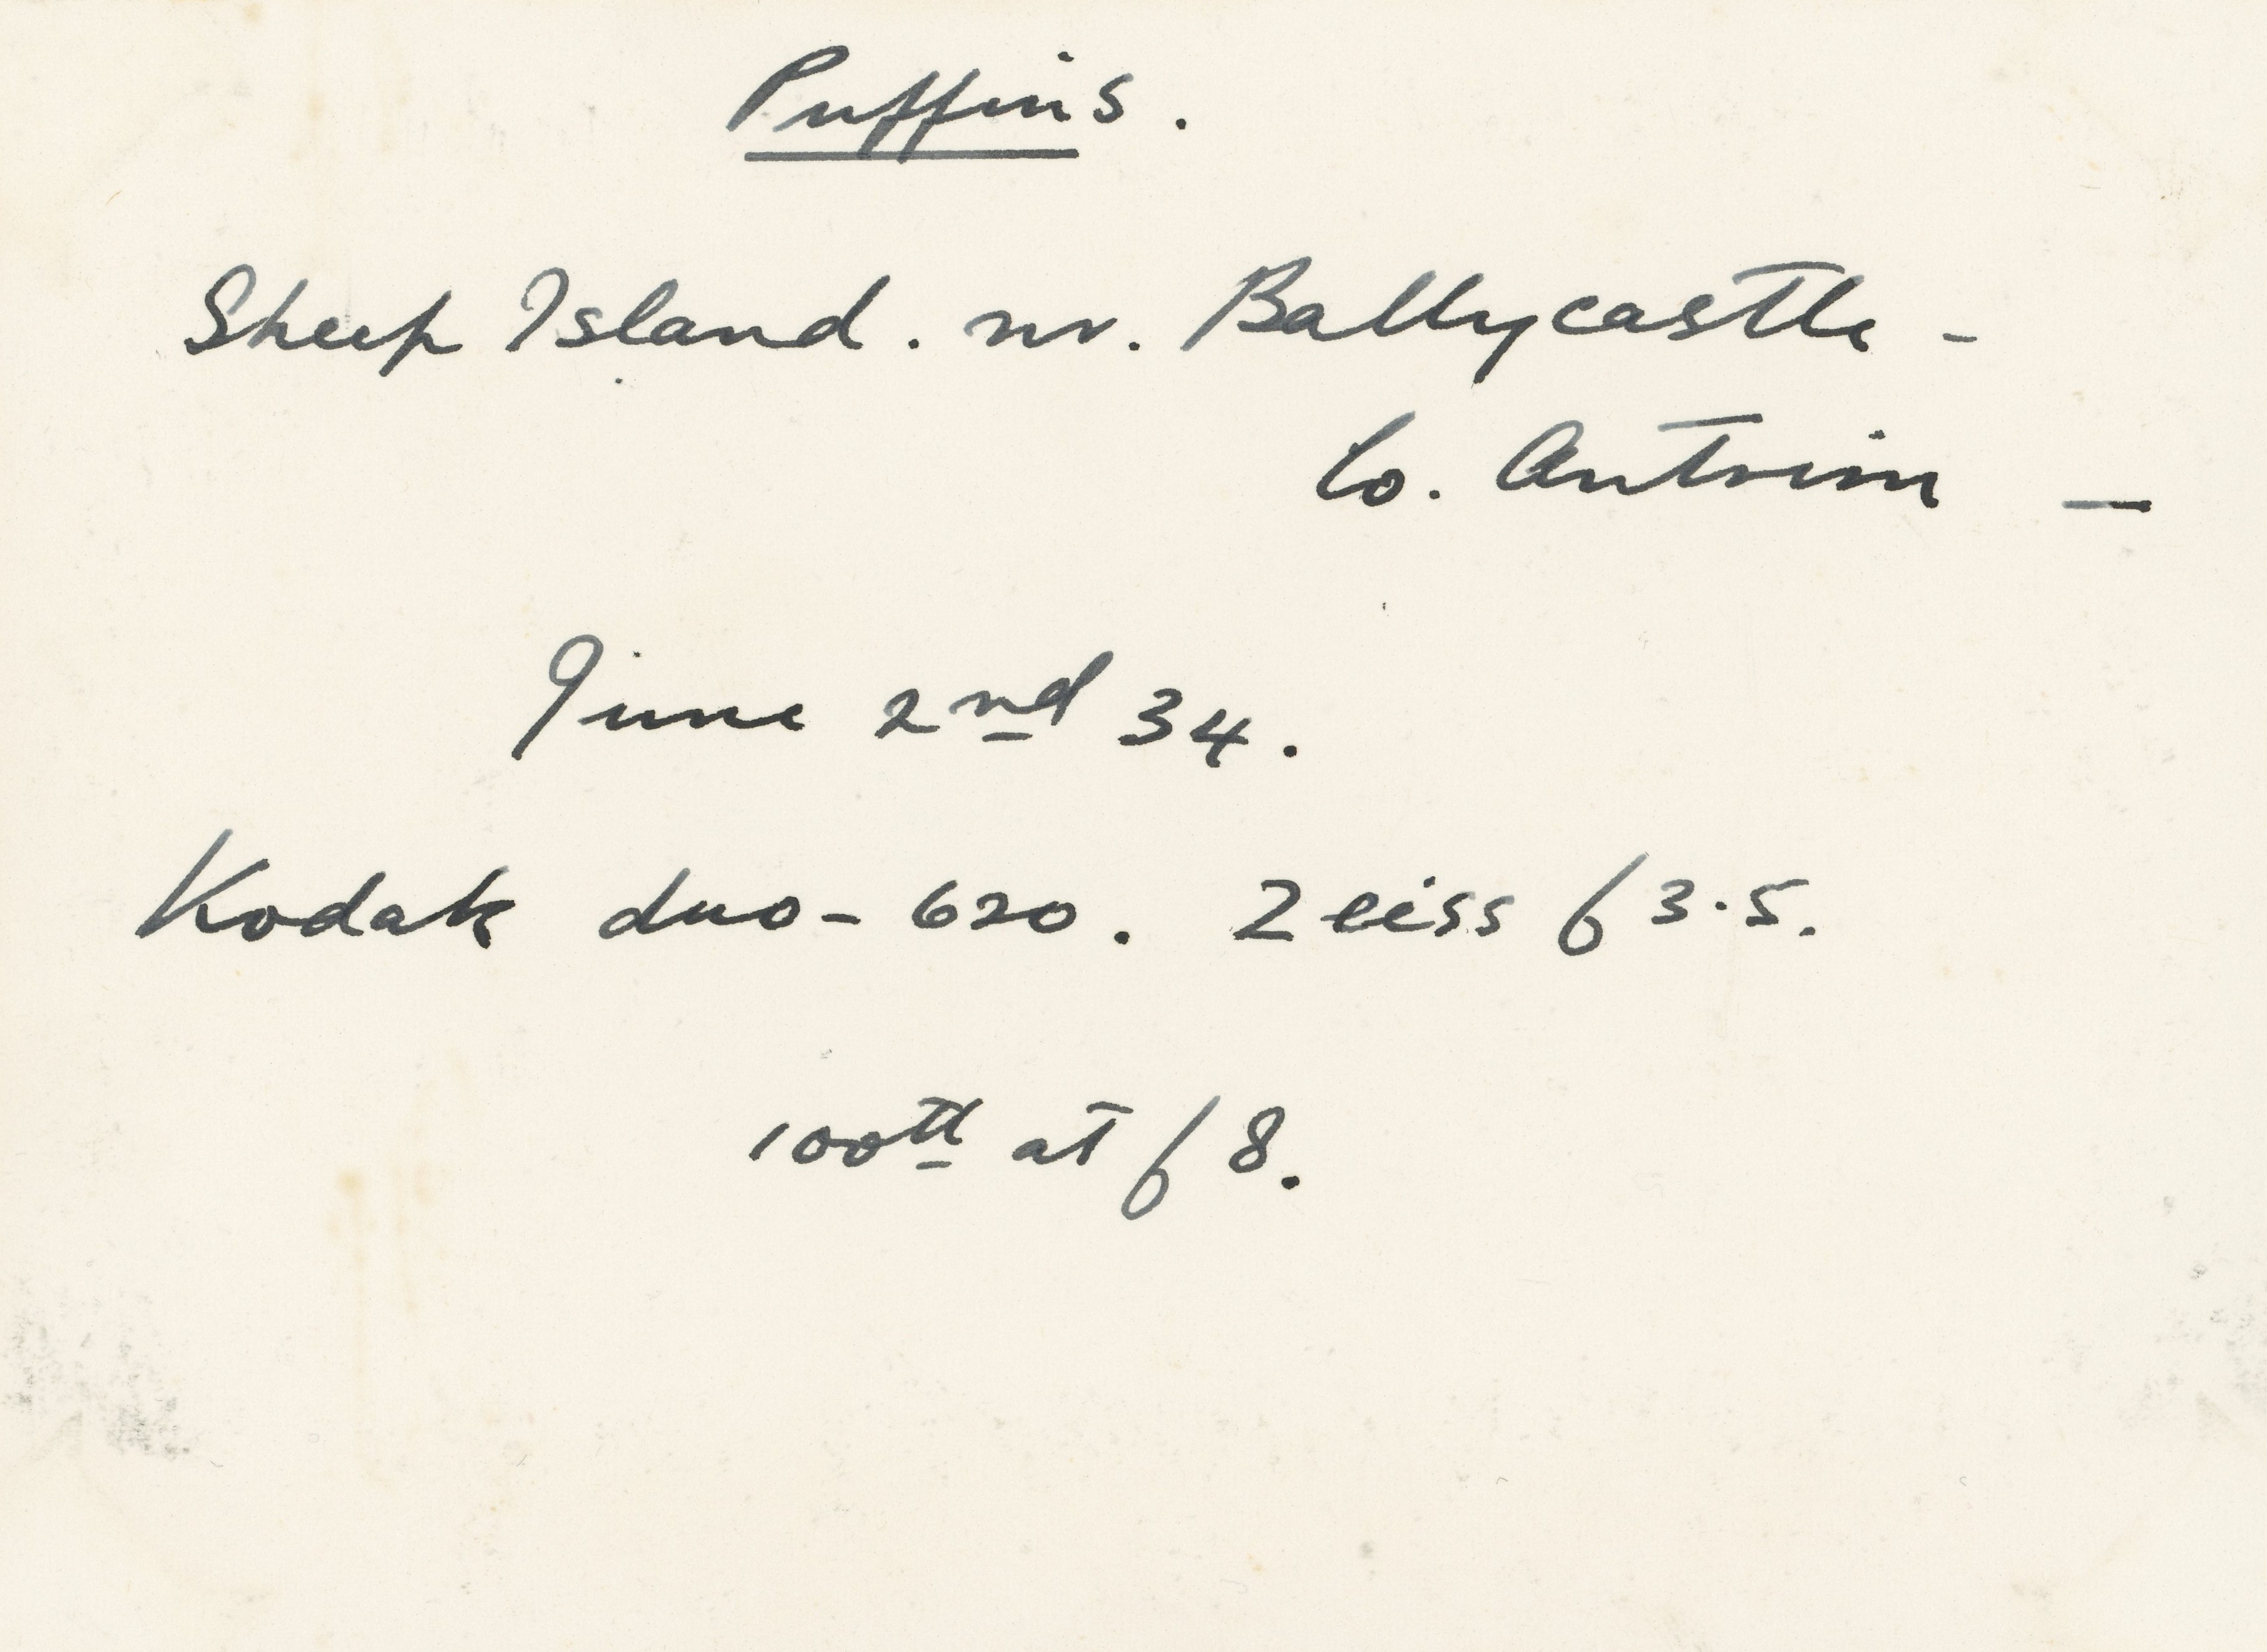 Puffins.
Sheep Island. nr. Ballycastle -
Co. Antrim —
June 2nd 34.
Kodak duo-620. Zeiss f3·5.
100th at f8.